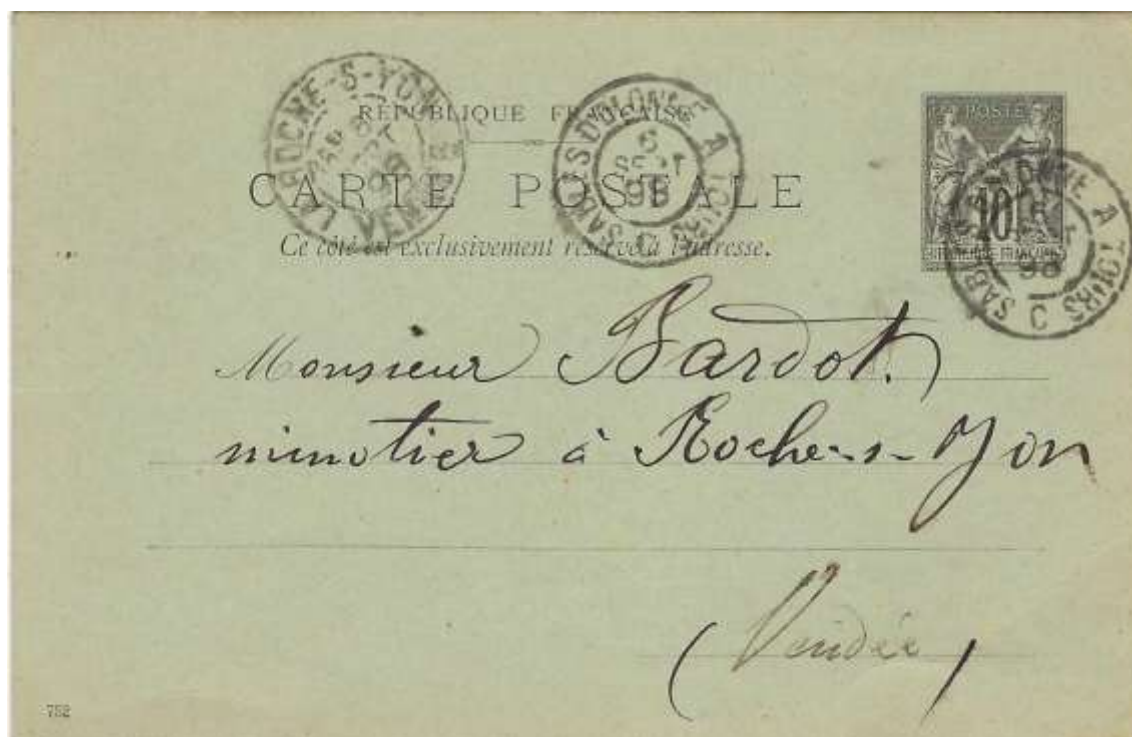 RÉPUBLIQUE FRANÇAISE
CARTE POSTALE
Ce côté est exclusivement réservé à l'adresse.
LA ROCHE-S-YON
VENDÉE
SABLES D'OLONNE A TOURS
6
SEPT
98
C
POSTE
10
REPUBLIQUE FRANCAISE
A TOURS
98
C
Monsieur Bardot.
minotier à Roche-s-Yon
(Vendée)
752